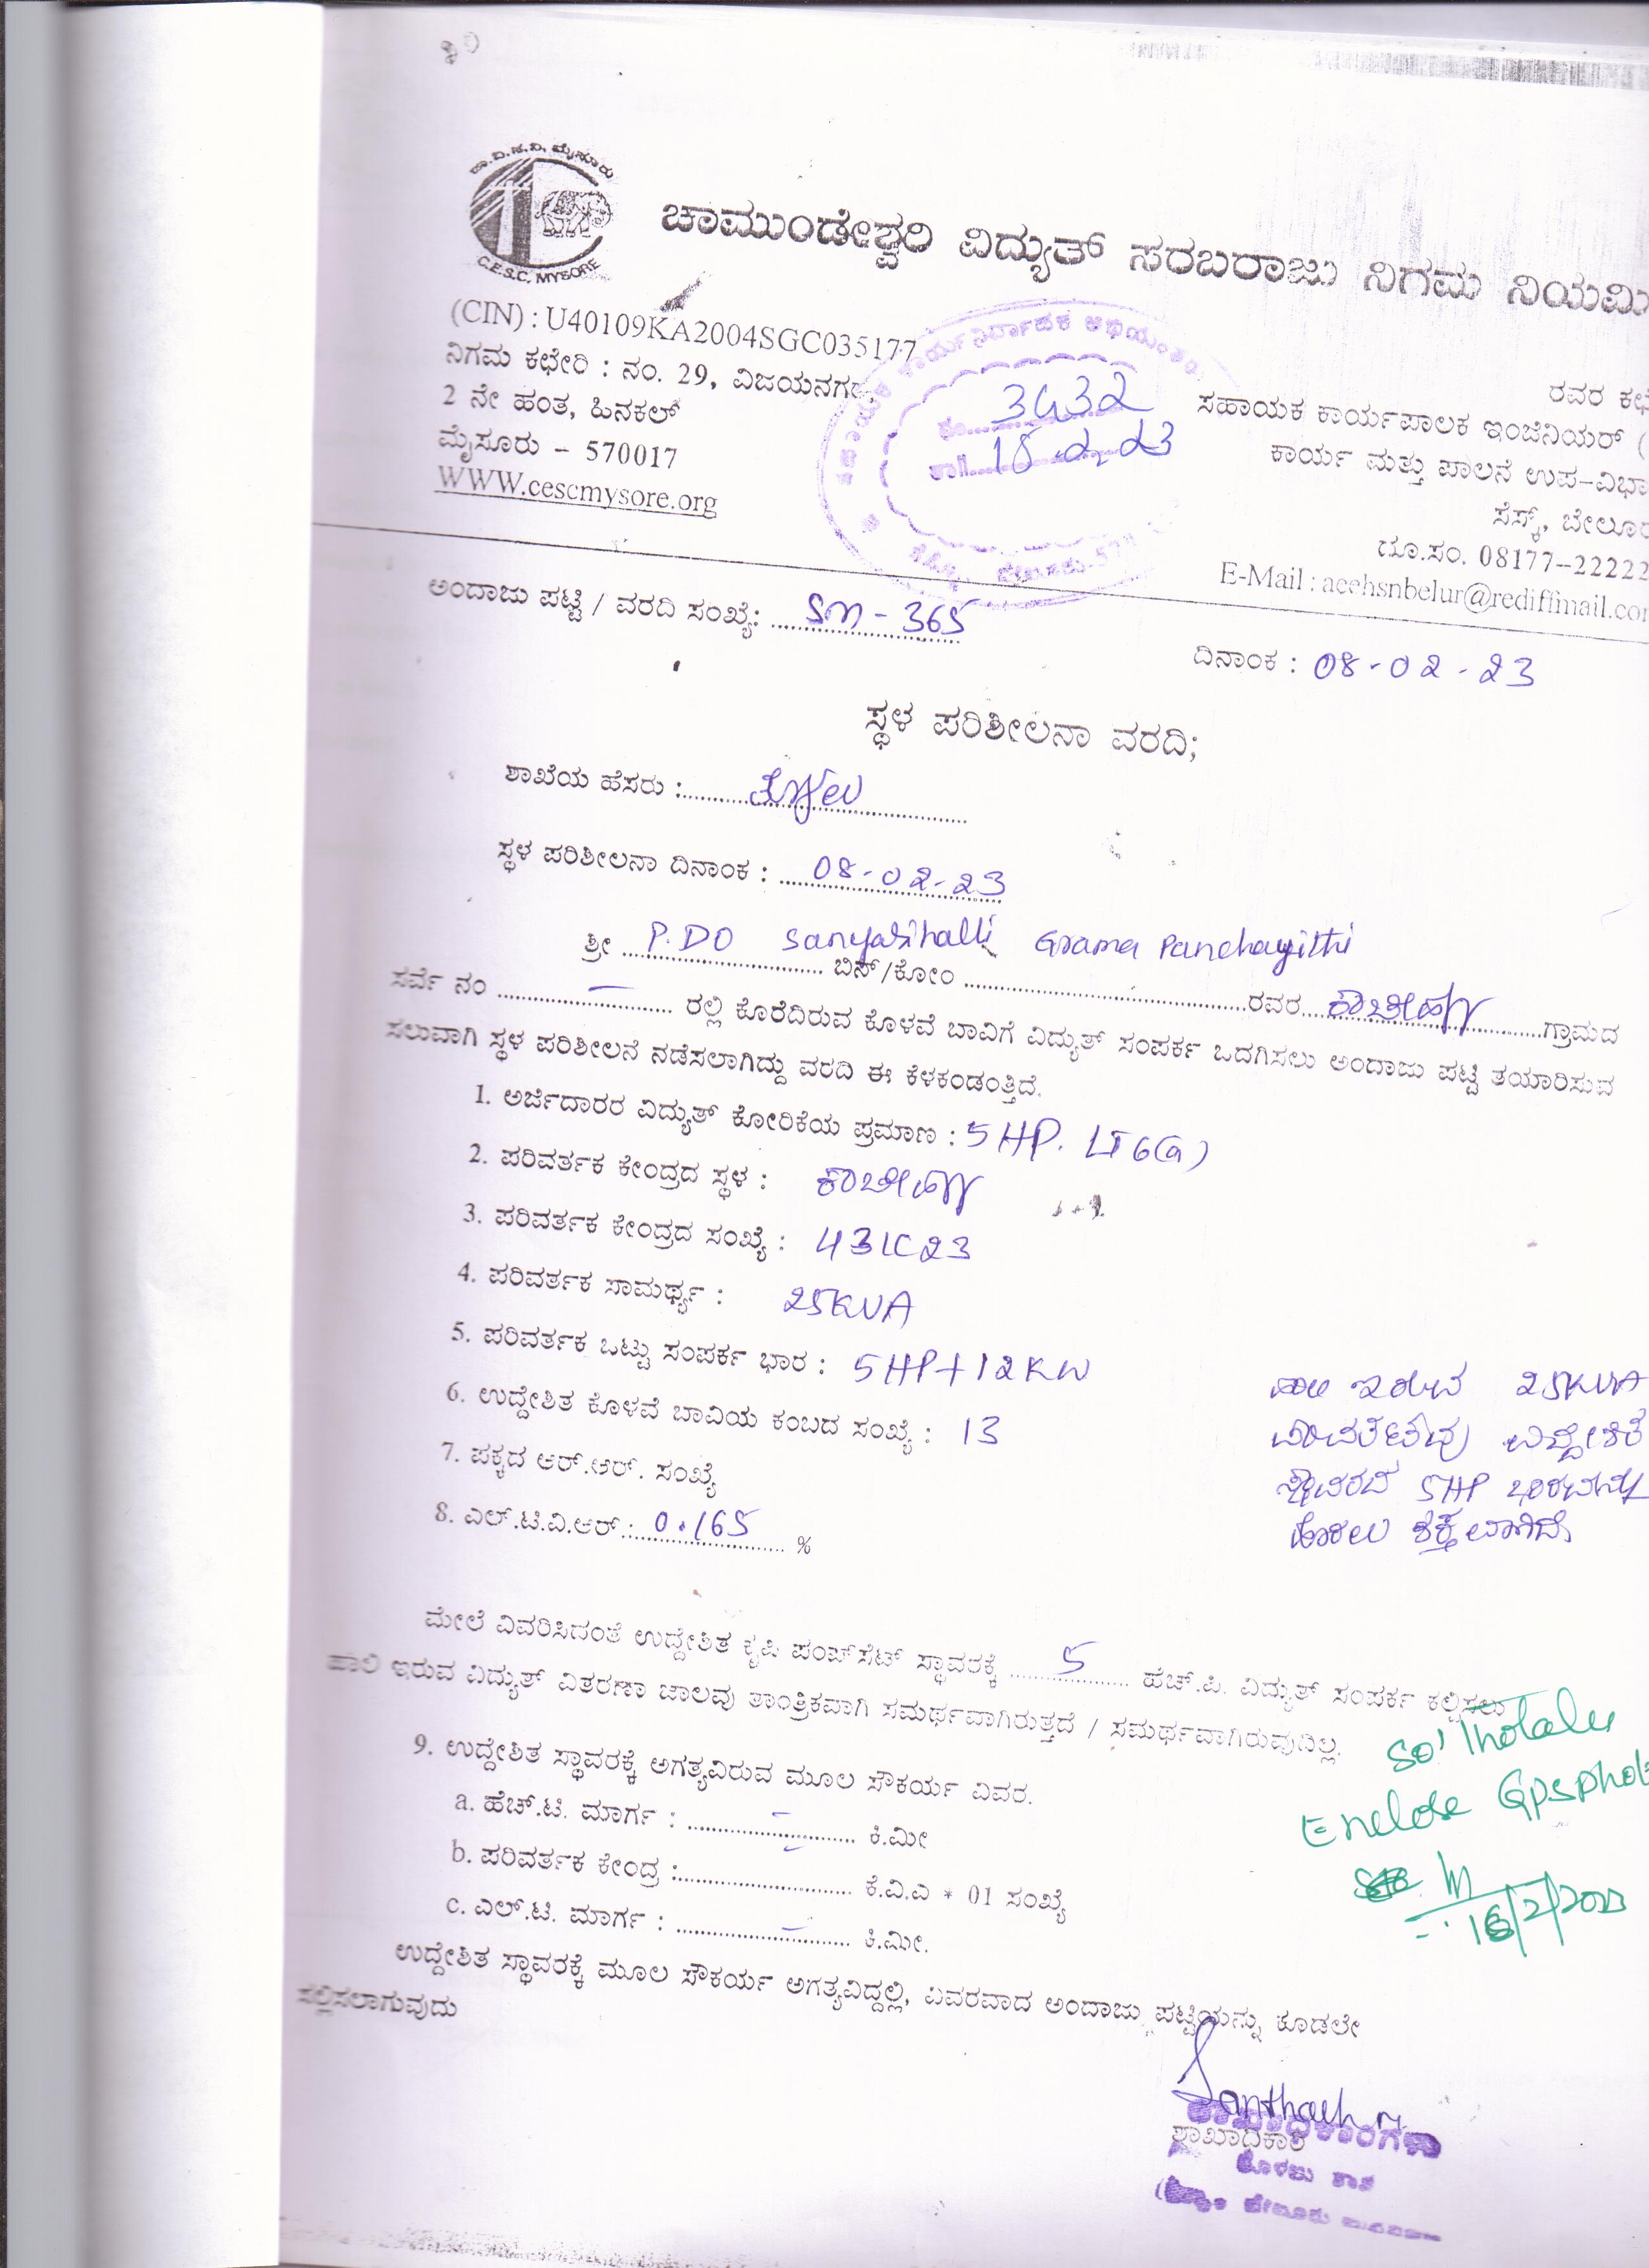 ಚಾ.ವಿ.ಸ.ನಿ. ಮೈಸೂರು
C.E.S.C. MYSORE
ಚಾಮುಂಡೇಶ್ವರಿ ವಿದ್ಯುತ್ ಸರಬರಾಜು ನಿಗಮ ನಿಯಮಿ
(CIN) : U40109KA2004SGC035177
ನಿಗಮ ಕಛೇರಿ : ನಂ. 29, ವಿಜಯನಗರ,
2 ನೇ ಹಂತ, ಹಿನಕಲ್
ಮೈಸೂರು – 570017
WWW.cescmysore.org
3432
18.2.23
ರವರ ಕಛೇ
ಸಹಾಯಕ ಕಾರ್ಯಪಾಲಕ ಇಂಜಿನಿಯರ್ (
ಕಾರ್ಯ ಮತ್ತು ಪಾಲನೆ ಉಪ-ವಿಭಾ
ಸೆಸ್ಕ್, ಬೇಲೂರ
ದೂ.ಸಂ. 08177--22222
E-Mail : aeehsnbelur@rediffmail.com
ಅಂದಾಜು ಪಟ್ಟಿ / ವರದಿ ಸಂಖ್ಯೆ: SM - 365
ದಿನಾಂಕ : 08-02-23
ಸ್ಥಳ ಪರಿಶೀಲನಾ ವರದಿ;
ಶಾಖೆಯ ಹೆಸರು :
ಸ್ಥಳ ಪರಿಶೀಲನಾ ದಿನಾಂಕ : 08-02-23
ಶ್ರೀ P.DO Sanyasihalli Grama Panchayithi ಬಿನ್/ಕೋಂ ರವರ ಗ್ರಾಮದ
ಸರ್ವೆ ನಂ — ರಲ್ಲಿ ಕೊರೆದಿರುವ ಕೊಳವೆ ಬಾವಿಗೆ ವಿದ್ಯುತ್ ಸಂಪರ್ಕ ಒದಗಿಸಲು ಅಂದಾಜು ಪಟ್ಟಿ ತಯಾರಿಸುವ
ಸಲುವಾಗಿ ಸ್ಥಳ ಪರಿಶೀಲನೆ ನಡೆಸಲಾಗಿದ್ದು ವರದಿ ಈ ಕೆಳಕಂಡಂತ್ತಿದೆ.
1. ಅರ್ಜಿದಾರರ ವಿದ್ಯುತ್ ಕೋರಿಕೆಯ ಪ್ರಮಾಣ : 5 HP. LT 6(a)
2. ಪರಿವರ್ತಕ ಕೇಂದ್ರದ ಸ್ಥಳ :
3. ಪರಿವರ್ತಕ ಕೇಂದ್ರದ ಸಂಖ್ಯೆ : 431C23
4. ಪರಿವರ್ತಕ ಸಾಮರ್ಥ್ಯ : 25KVA
5. ಪರಿವರ್ತಕ ಒಟ್ಟು ಸಂಪರ್ಕ ಭಾರ : 5 HP + 12 KW
6. ಉದ್ದೇಶಿತ ಕೊಳವೆ ಬಾವಿಯ ಕಂಬದ ಸಂಖ್ಯೆ : 13
7. ಪಕ್ಕದ ಆರ್.ಆರ್. ಸಂಖ್ಯೆ
8. ಎಲ್.ಟಿ.ವಿ.ಆರ್.: 0.165 %
ಹಾಲಿ ಇರುವ 25KVA
ಪರಿವರ್ತಕವು ಉದ್ದೇಶಿತ
ಸ್ಥಾವರದ 5HP ಭಾರವನ್ನು
ಹೊರಲು ಶಕ್ತವಾಗಿದೆ
ಮೇಲೆ ವಿವರಿಸಿದಂತೆ ಉದ್ದೇಶಿತ ಕೃಷಿ ಪಂಪ್‌ಸೆಟ್ ಸ್ಥಾವರಕ್ಕೆ 5 ಹೆಚ್.ಪಿ. ವಿದ್ಯುತ್ ಸಂಪರ್ಕ ಕಲ್ಪಿಸಲು
ಹಾಲಿ ಇರುವ ವಿದ್ಯುತ್ ವಿತರಣಾ ಜಾಲವು ತಾಂತ್ರಿಕವಾಗಿ ಸಮರ್ಥವಾಗಿರುತ್ತದೆ / ಸಮರ್ಥವಾಗಿರುವುದಿಲ್ಲ.
9. ಉದ್ದೇಶಿತ ಸ್ಥಾವರಕ್ಕೆ ಅಗತ್ಯವಿರುವ ಮೂಲ ಸೌಕರ್ಯ ವಿವರ.
a. ಹೆಚ್.ಟಿ. ಮಾರ್ಗ : — ಕಿ.ಮೀ
b. ಪರಿವರ್ತಕ ಕೇಂದ್ರ : — ಕೆ.ವಿ.ಎ * 01 ಸಂಖ್ಯೆ
c. ಎಲ್.ಟಿ. ಮಾರ್ಗ : — ಕಿ.ಮೀ.
SO' Tholalu
Enclose Gps Phot
16/2/2023
ಉದ್ದೇಶಿತ ಸ್ಥಾವರಕ್ಕೆ ಮೂಲ ಸೌಕರ್ಯ ಅಗತ್ಯವಿದ್ದಲ್ಲಿ, ವಿವರವಾದ ಅಂದಾಜು ಪಟ್ಟಿಯನ್ನು ಕೂಡಲೇ
ಸಲ್ಲಿಸಲಾಗುವುದು
ಶಾಖಾಧಿಕಾರಿ